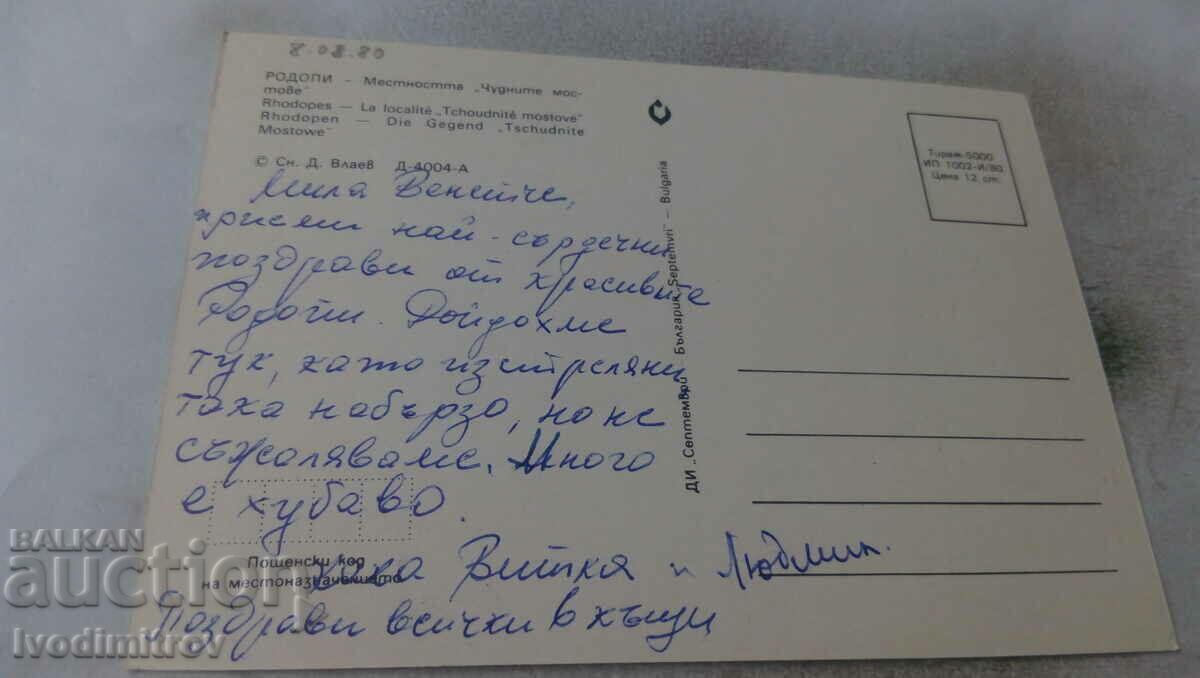 8.03.80
РОДОПИ – Местността „Чудните мос-
тове"
Rhodopes — La localité „Tchoudnité mostové"
Rhodopen — Die Gegend „Tschudnite
Mostowe"
© Сн. Д. Влаев Д-4004-А
Тираж 5000
ИП 1002-И/80
Цена 12 ст.
ДИ „Септември" — България „Septemvri" — Bulgaria
Мила Венетче,
присети най-сърдечни
поздрави от красивите
Родопи. Дойдохме
тук, като изстреляни
така набързо, но не
съжаляваме. Много
е хубаво.
Пощенски код
на местоназначението
кака Витка и Людмил.
Поздрави всички в къщи
BALKAN
auction
Ivodimitrov